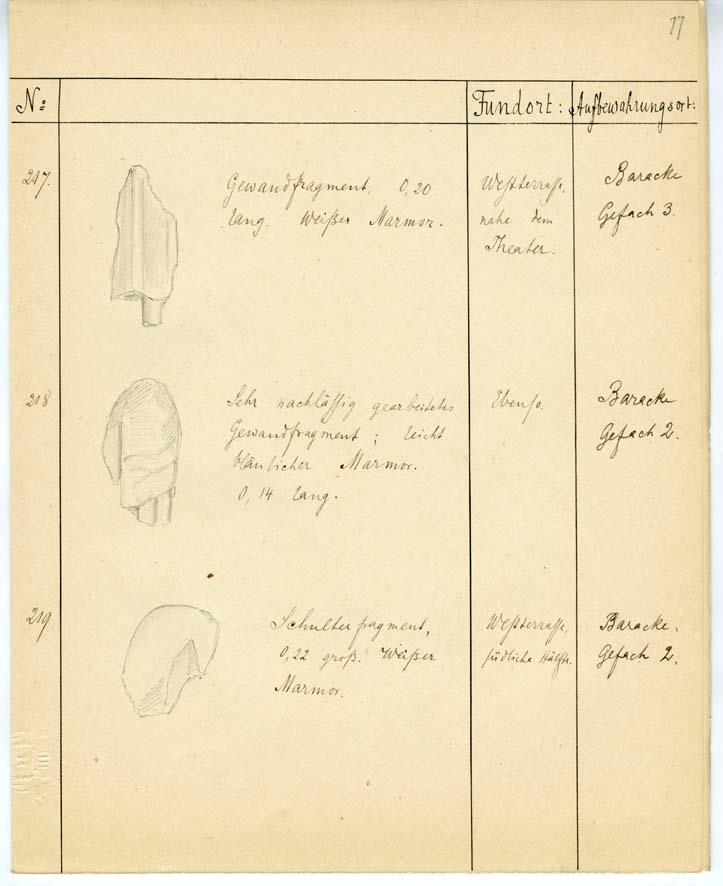 77
No: Fundort: Aufbewahrungsort:
217. Gewandfragment. 0,20
lang. Weißer Marmor.
Westterrasse,
nahe dem
Theater.
Baracke
Gefach 3.
218 Sehr nachlässig gearbeitetes
Gewandfragment; leicht
bläulicher Marmor.
0,14 lang.
Ebenso.
Baracke
Gefach 2.
219. Schulterfragment,
0,22 groß. Weißer
Marmor.
Westterrasse,
südliche Hälfte.
Baracke.
Gefach 2.